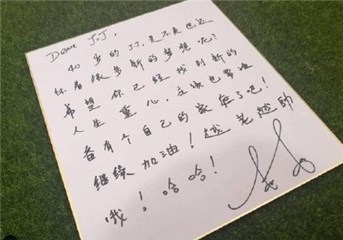 Dear J.J,
40岁的JJ,是不是也还
怀着很多新的梦想呢?
希望你已经找到新的
人生重心,应该也准备
备有个自己的家庭了吧!
继续加油!越老越帅
哦!哈哈!